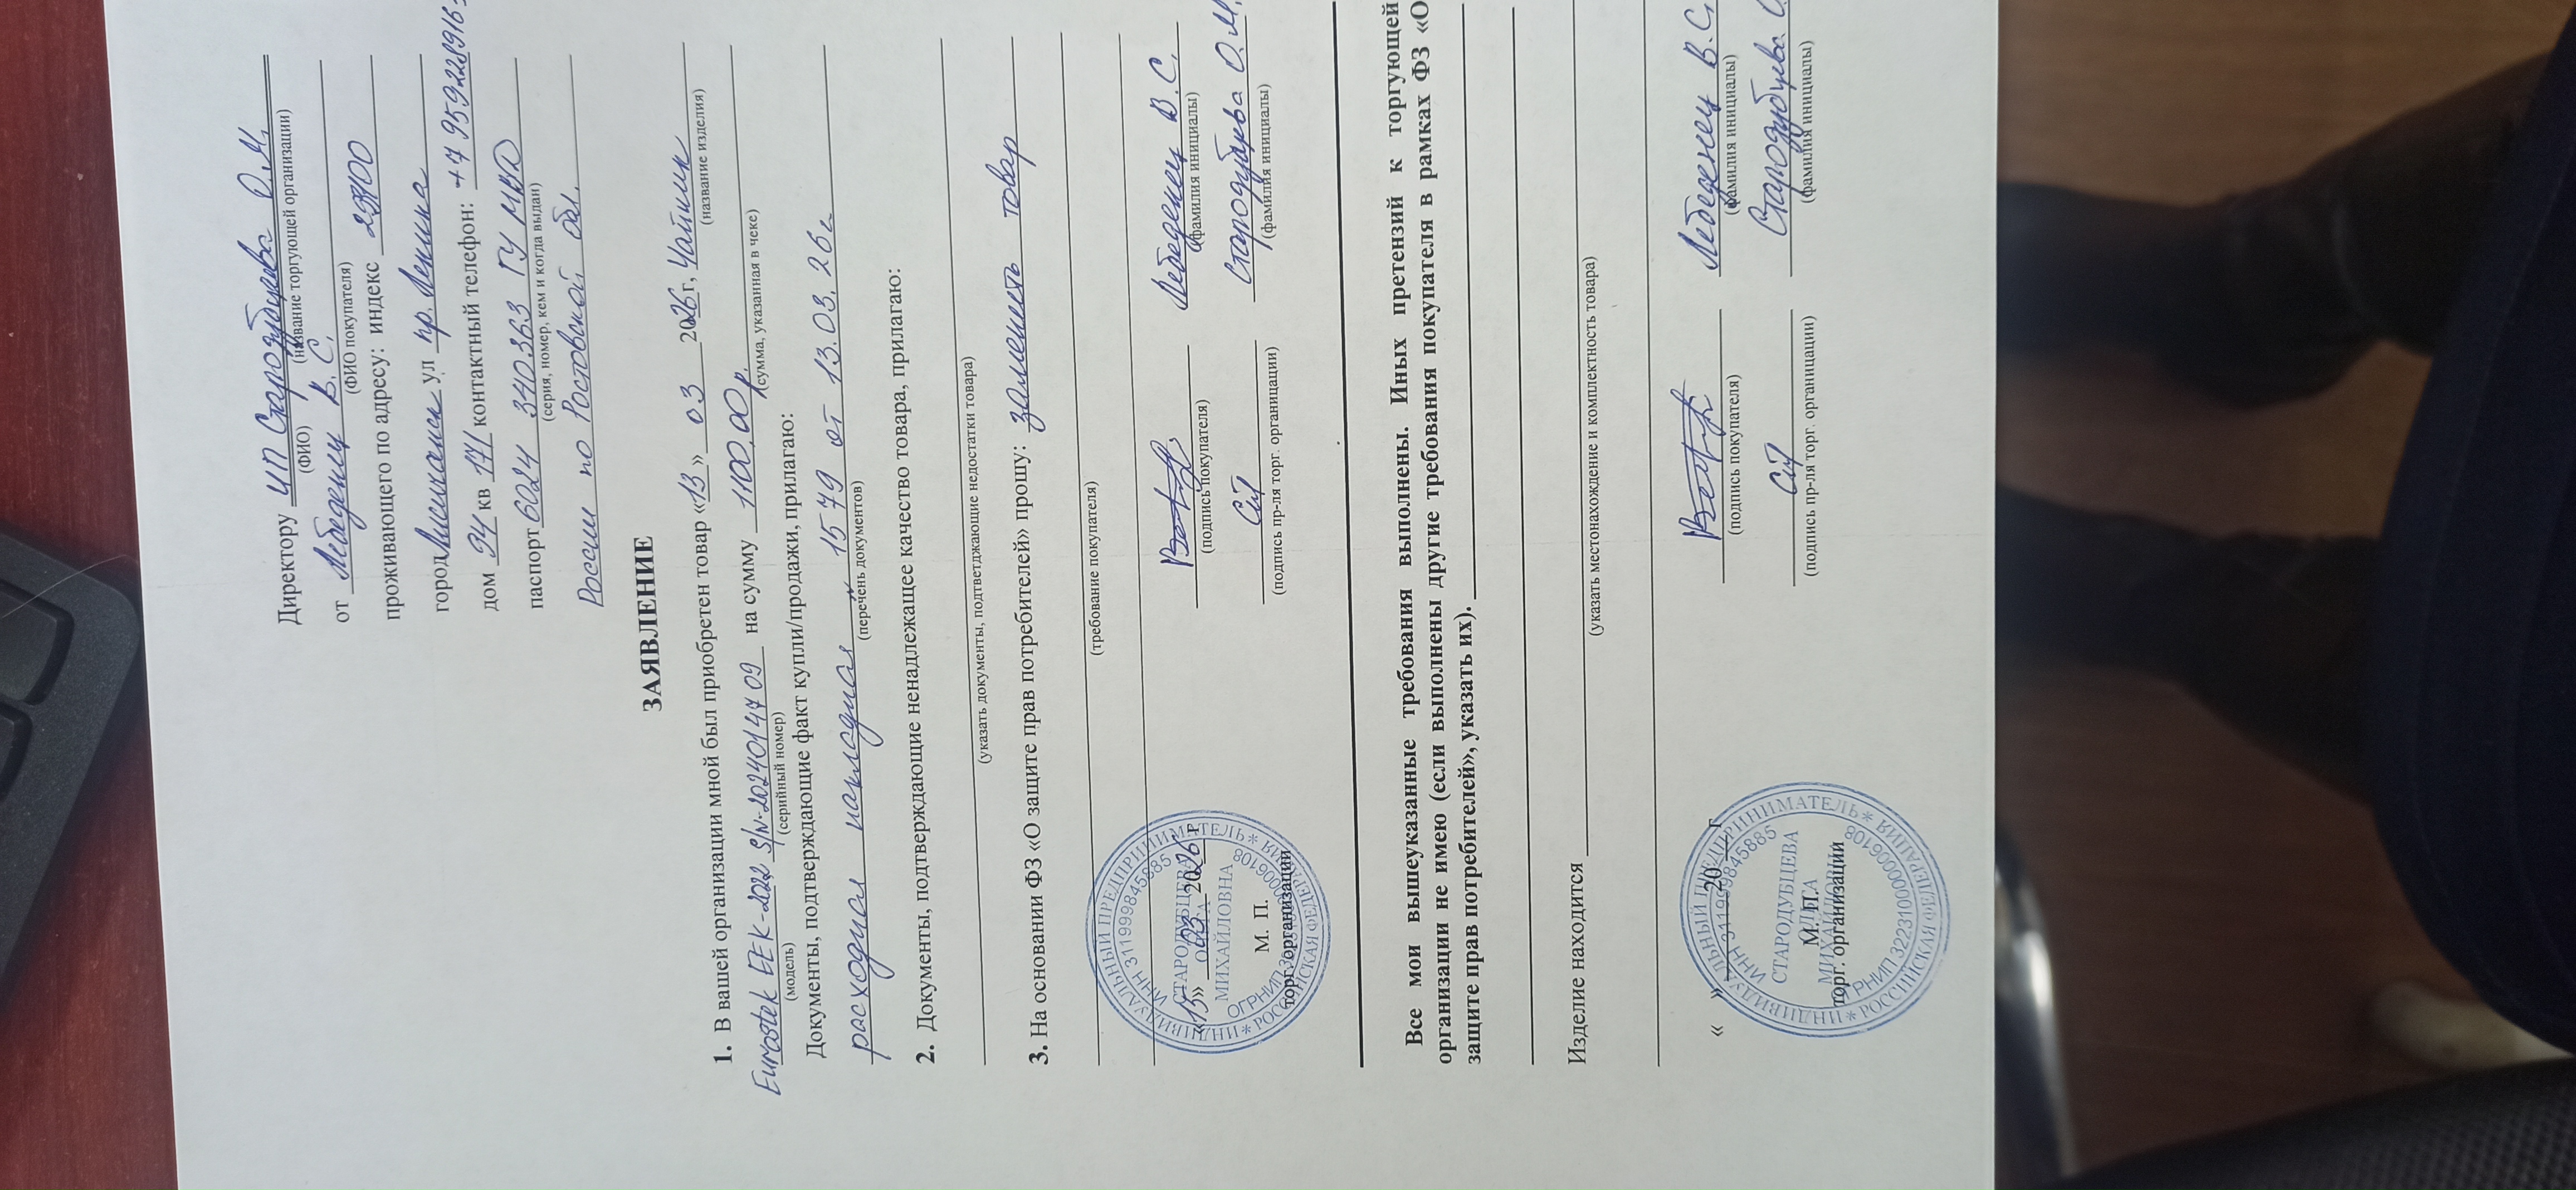 Директору ИП Стародубцева О.М.
(ФИО) (название торгующей организации)
от Лебеденец В.С.
(ФИО покупателя)
проживающего по адресу: индекс
город Лисичанск ул пр. Ленина
дом 94 кв 171 контактный телефон: +7 959 2289163
паспорт 6024 340363 ГУ МВД
(серия, номер, кем и когда выдан)
России по Ростовской обл.
ЗАЯВЛЕНИЕ
1. В вашей организации мной был приобретен товар «13» 03 2026г, Чайник
(название изделия)
Eurostek EEK-2022 S/N-2024014709 на сумму 1100,00 р.
(модель) (серийный номер) (сумма, указанная в чеке)
Документы, подтверждающие факт купли/продажи, прилагаю:
расходная накладная № 1579 от 13.03.26г
(перечень документов)
2. Документы, подтверждающие ненадлежащее качество товара, прилагаю:
(указать документы, подтветджающие недостатки товара)
3. На основании ФЗ «О защите прав потребителей» прошу: заменить товар
(требование покупателя)
Лебеденец В.С.
(подпись покупателя) (фамилия инициалы)
Стародубцева О.М.
(подпись пр-ля торг. органицации) (фамилия инициалы)
«13» 03 2026 г
М. П.
торг. организации
ИНДИВИДУАЛЬНЫЙ ПРЕДПРИНИМАТЕЛЬ * РОССИЙСКАЯ ФЕДЕРАЦИЯ *
ИНН 311999845885
СТАРОДУБЦЕВА
ОЛЬГА
МИХАЙЛОВНА
Все мои вышеуказанные требования выполнены. Иных претензий к торгующей
организации не имею (если выполнены другие требования покупателя в рамках ФЗ «О
защите прав потребителей», указать их).
Изделие находится
(указать местонахождение и комплектность товара)
Лебеденец В.С.
(подпись покупателя) (фамилия инициалы)
Стародубцева
(подпись пр-ля торг. органицации) (фамилия инициалы)
« » 20 г
М. П.
торг. организации
ИНДИВИДУАЛЬНЫЙ ПРЕДПРИНИМАТЕЛЬ * РОССИЙСКАЯ ФЕДЕРАЦИЯ *
ИНН 311999845885
СТАРОДУБЦЕВА
ОЛЬГА
МИХАЙЛОВНА